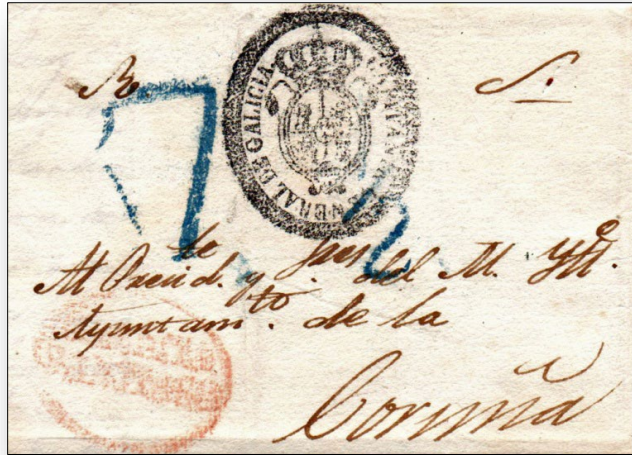 R. S.
CAPITANIA GENERAL DE GALICIA
Al Presid.te y Sres. del M. Yll.e
Ayuntam.to de la
Coruña